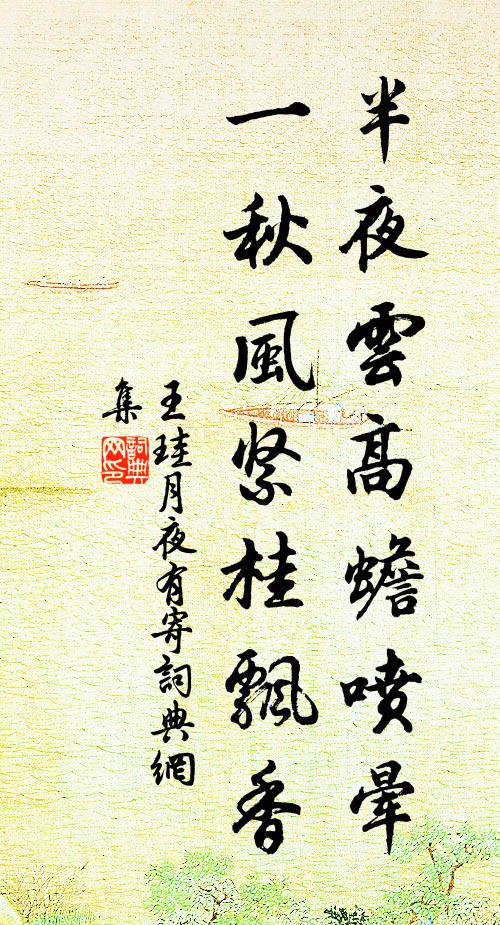 半夜雲高蟾噴暈
一秋風緊桂飄香
王珪月夜有寄詞典網
集
詞典
网印